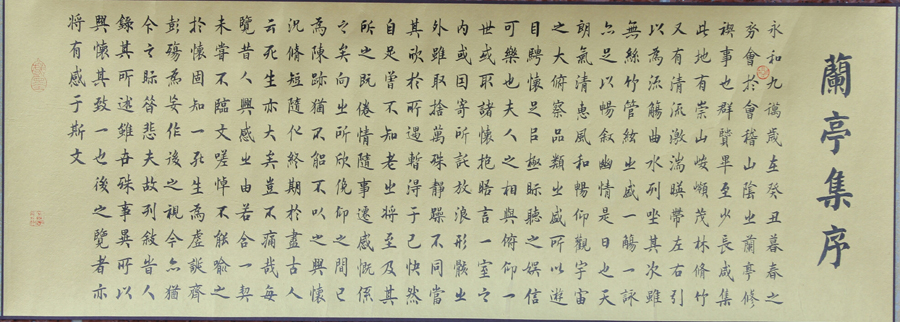 蘭亭集序
永和九年歲在癸丑暮春之
初會於會稽山陰㞢蘭亭修
禊事也群賢畢至少長咸集
此地有崇山峻嶺茂林修竹
又有清流激湍暎帶左右引
以為流觴曲水列坐其次雖
無絲竹管絃㞢盛一觴一詠
亦足以暢敘幽情是日也天
朗氣清惠風和暢仰觀宇宙
之大俯察品類㞢盛所以遊
目騁懷足㠯極眎聽之娛信
可樂也夫人之相與俯仰一
世或取諸懷抱晤言一室之
內或因寄所託放浪形骸㞢
外雖取捨萬殊靜躁不同當
其欣於所遇暫得于己快然
自足曾不知老㞢將至及其
所之既倦情隨事遷感慨係
之矣向㞢所欣俛仰之間已
為陳跡猶不能不以之興懷
況脩短隨化終期於盡古人
云死生亦大矣豈不痛哉每
覽昔人興感㞢由若合一契
未嘗不臨文嗟悼不能喻之
於懷固知一死生為虛誕齊
彭殤為妄作後之視今亦猶
今之眎昔悲夫故列敘旹人
錄其所述雖世殊事異所以
興懷其致一也後之覽者亦
將有感于斯文